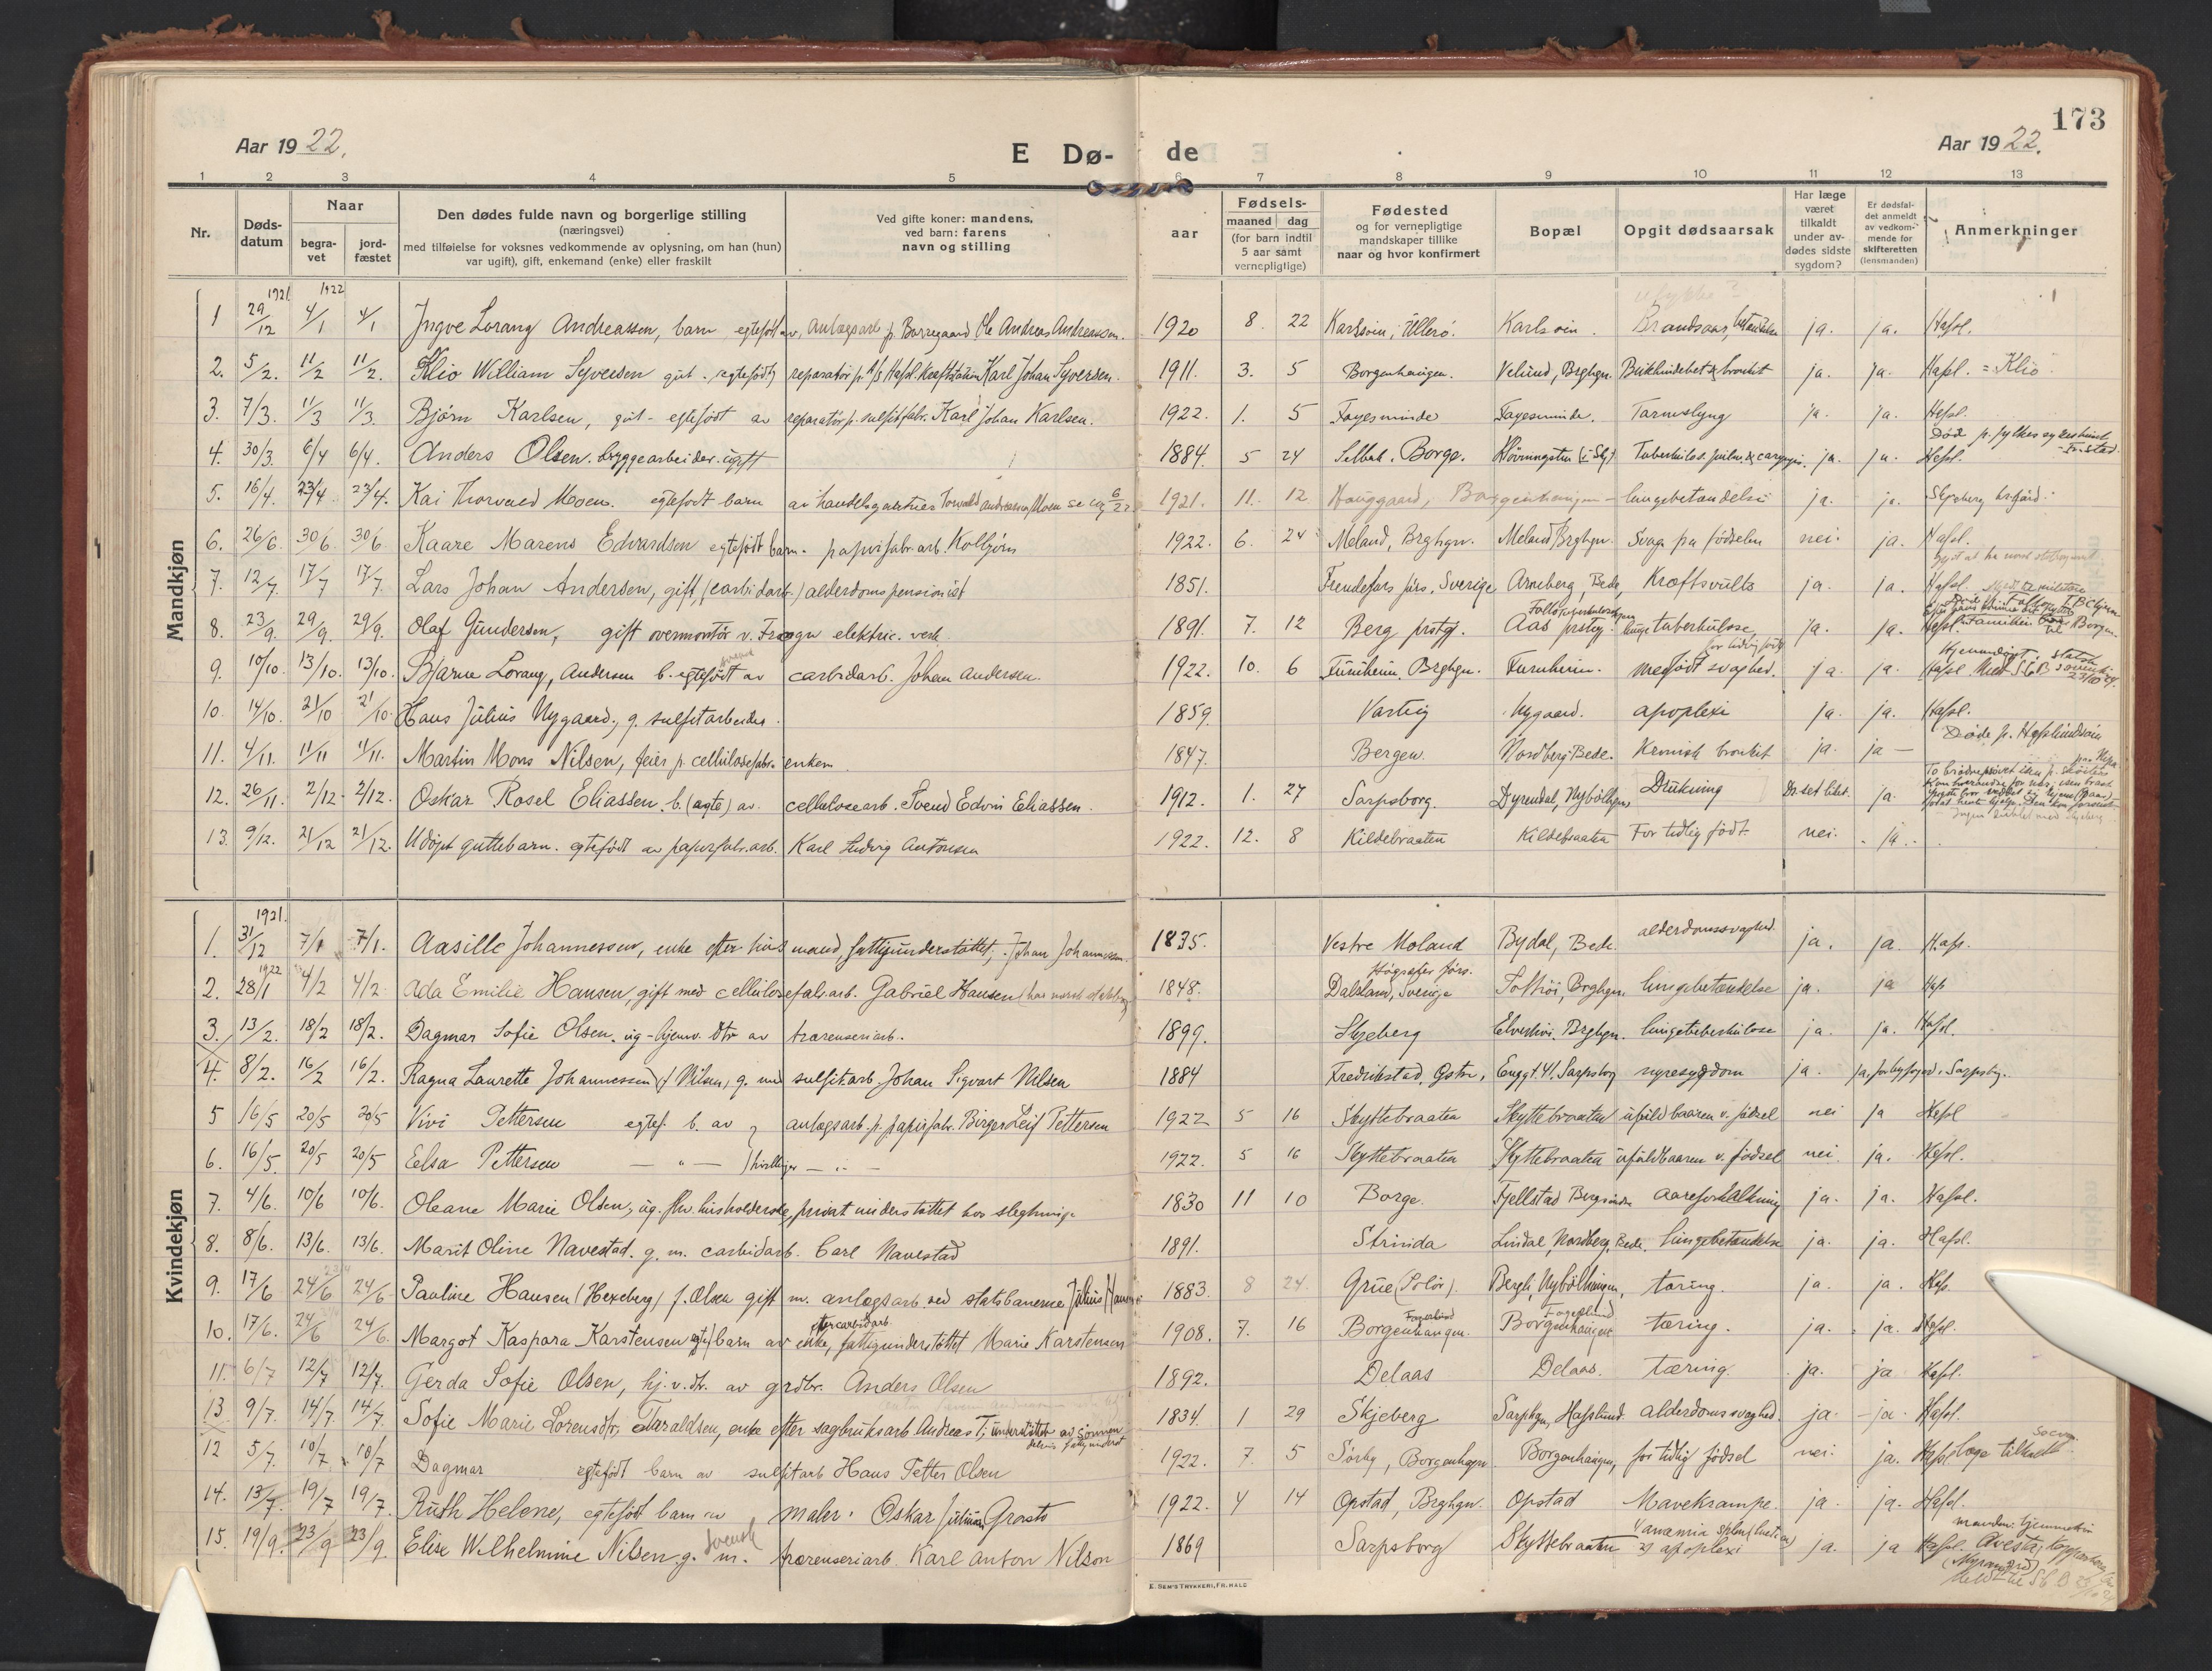 173
Aar 1922.
E Dø-
de
Aar 1922.
1 2 3 4 5 6 7 8 9 10 11 12 13
Nr.
Døds-
datum
Naar
begra-
vet
jord-
fæstet
Den dødes fulde navn og borgerlige stilling
(næringsvei)
med tilføielse for voksnes vedkommende av oplysning, om han (hun)
var ugift), gift, enkemand (enke) eller fraskilt
Ved gifte koner: mandens,
ved barn: farens
navn og stilling
aar
Fødsels-
maaned dag
(for barn indtil
5 aar samt
vernepligtige)
Fødested
og for vernepligtige
mandskaper tillike
naar og hvor konfirmert
Bopæl
Opgit dødsaarsak
Har læge
været
tilkaldt
under av-
dødes sidste
sygdom?
Er dødsfal-
det anmeldt
av vedkom-
mende for
skifteretten
(lensmanden)
Anmerkninger
Mandkjøn
1921 1922
1 29/12 4/1 4/1 Ingve Lorang Andreassen, barn egtefødt av, anlægsarb. p. Borregaard Ole Andreas Andreassen. 1920 8. 22 Karlsoin, Ullerø. Karlsoin. Brandsaar, betændelse ja. ja. Hafsl.
2. 5/2. 11/2 11/2. Klio William Syversen gut. egtefødt reparatør p. A/S Hafsl. Kraftstation Karl Johan Syversen. 1911. 3. 5 Borgenhaugen. Velund, Brghgn. bronkit ja. ja. Hafsl. = Klio
3. 7/3. 11/3 11/3. Bjørn Karlsen, gut - egtefødt av reparatør p. sulfitfabr. Karl Johan Karlsen. 1922. 1. 5 Fagesminde Fagesminde. Tarmslyng ja. ja. Hafsl.
Død p. fylkessykehuset
4. 30/3. 6/4 6/4. Anders Olsen. bryggearbeider. ugift 1884. 5 24 Selbak. Borge. ja. ja. Hafsl.
5. 16/4. 23/4 23/4. Kai Thorvald Moen. egtefødt barn av handelsgartner Torvald Andreassen Moen 1921. 11. 12 Hauggaard, Borgenhaugen - lungebetændelse ja. ja. Skjeberg
6. 26/6. 30/6 30/6 Kaare Marens Edvardsen egtefødt barn. papirfabr.arb. Kolbjørn 1922. 6. 24 Meland, Brghgn. Meland Brghgn. Svag fra fødselen nei. ja. Hafsl.
7. 12/7. 17/7 17/7. Lars Johan Andersen, gift, (carbidarb.) alderdomspensionist 1851. Sverige Arneberg, Bede, Kræftsvulst ja. ja. Hafsl.
8. 23/9. 29/9. 29/9. Olaf Gundersen, gift overmontør v. Fragn elektric. verk. 1891. 7. 12 Berg prstgj. Aas prstgj. lungetuberkulose ja. ja. Hafsl.
9. 10/10. 13/10. 13/10. Bjarne Lorang, Andersen b. egtefødt av carbidarb. Johan Andersen. 1922. 10. 6 Furuheim, Brghgn. Furuheim. medfødt svaghed. ja. ja. Hafsl.
10. 14/10. 21/10 21/10. Hans Julius Nygaard, g. sulfitarbeider. 1859. Varteig Nygaard. apoplexi ja. ja. Hafsl.
11. 4/11. 11/11 11/11. Martin Mons Nilsen, feier p. cellulosefabr. enkem. 1847. Bergen. Nordberg Bede. Kronisk bronkit ja. ja —
12. 26/11. 2/12. 2/12. Oskar Rosel Eliassen. b. (egte) av. cellulosearb. Svend Edvin Eliassen. 1912. 1. 27 Sarpsborg. Dyrendal, Nybølhgn. Drukning ja.
13. 9/12. 21/12 21/12. Udøpt guttebarn. egtefødt av papirfabr.arb. Karl Ludvig Antonsen 1922. 12. 8 Kildebraaten Kildebraaten For tidlig født nei. ja.
Kvindekjøn
1921.
1. 31/12 7/1 7/1. Aasille Johannessen, enke efter husmand, fattigunderstøttet, Johan Johannessen. 1835. Vestre Moland Bydal, Bede. alderdomssvaghed. ja. ja Hafs.
1922
2. 28/1 4/2 4/2 Ada Emilie Hansen, gift med cellulosefabr.arb. Gabriel Hansen 1848. Dalsland, Sverige Brghgn. lungebetændelse ja. ja Hafs
3. 13/2. 18/2 18/2. Dagmar Sofie Olsen. ug - hjemv. dtr av trærenseriarb. 1899. Skjeberg Brghgn. lungetuberkulose ja. ja. Hafsl.
4. 8/2. 16/2 16/2. Ragna Laurette Johannessen (f Nilsen, g. med sulfitarb. Johan Sigvart Nilsen 1884 Fredrikstad, Østre, Enggt. 41. Sarpsborg nyresygdom ja. ja, for byfoged i Sarpsbrg.
5 16/5 20/5 20/5 Vivi Pettersen egtef. b. av anlægsarb. p. papirfabr. Birger Leif Pettersen 1922 5 16 Skyttebraaten Skyttebraaten ufuldbaaren v. fødsel nei ja Hafsl
6. 16/5. 20/5 20/5 Eelsa Pettersen — " — tvillinger — " — 1922. 5 16 Skyttebraaten Skyttebraaten ufuldbaaren v. fødsel nei. ja. Hafsl.
7. 4/6. 10/6 10/6. Oleane Marie Olsen, ug. fhv. husholderske, privat understøttet hos slegtninge 1830 11 10 Borge. Fjellstad aareforkalkning ja. ja. Hafsl.
8. 8/6. 13/6. 13/6. Marit Oline Navestad. g. m. carbidarb. Carl Navestad 1891. Strinda Lindal, Nordberg, Bede. lungebetændelse ja. ja. Hafsl.
9. 17/6 24/6 24/6 Pauline Hansen (Hexeberg) f. Olsen gift m. anlægsarb ved statsbanerne Julius Hansen 1883. 8 24 Grue (Solør). Bergli, Nybølhaugen, tæring. ja. ja. Hafs.
10. 17/6. 24/6 24/6. Margot Kaspara Karstensen egtef. barn av enke efter carbidarb. fattigunderstøttet Marie Karstensen 1908. 7. 16 Borgenhaugen. Borgenhaugen tæring. ja. ja. Hafsl.
11. 6/7 12/7 12/7. Gerda Sofie Olsen, hj.v.dtr. av grdbr. Anders Olsen 1892. Delaas Delaas. tæring. ja. ja Hafsl.
13 9/7. 14/7 14/7. Sofie Marie Lorensdtr. Taraldsen, enke efter sagbruksarb. Andreas T, understøttet av sønnen 1834. 1 29 Skjeberg Hafslund alderdomssvaghed. ja - ja. Hafsl.
12 5/7. 10/7 10/7 Dagmar egtefødt barn av sulfitarb Hans Petter Olsen 1922. 7. 5 Sørby, Borgenhgn. Borgenhaugen, for tidlig fødsel nei. ja. Hafsl læge tilkaldt
14. 13/7. 19/7 19/7. Ruth Helene, egtefødt barn av maler. Oskar Julius Graasto 1922. 4 14 Opstad, Brghgn. Opstad Mavekrampe. ja. ja. Hafsl.
15. 19/9. 23/9 23/9. Elise Wilhelmine Nilsen g. m. svensk trærenseriarb. Karl Anton Nilson 1869 Sarpsborg Skyttebraaten apoplexi ja. ja Hafsl.
E. SEM'S TRYKKERI, FR.HALD